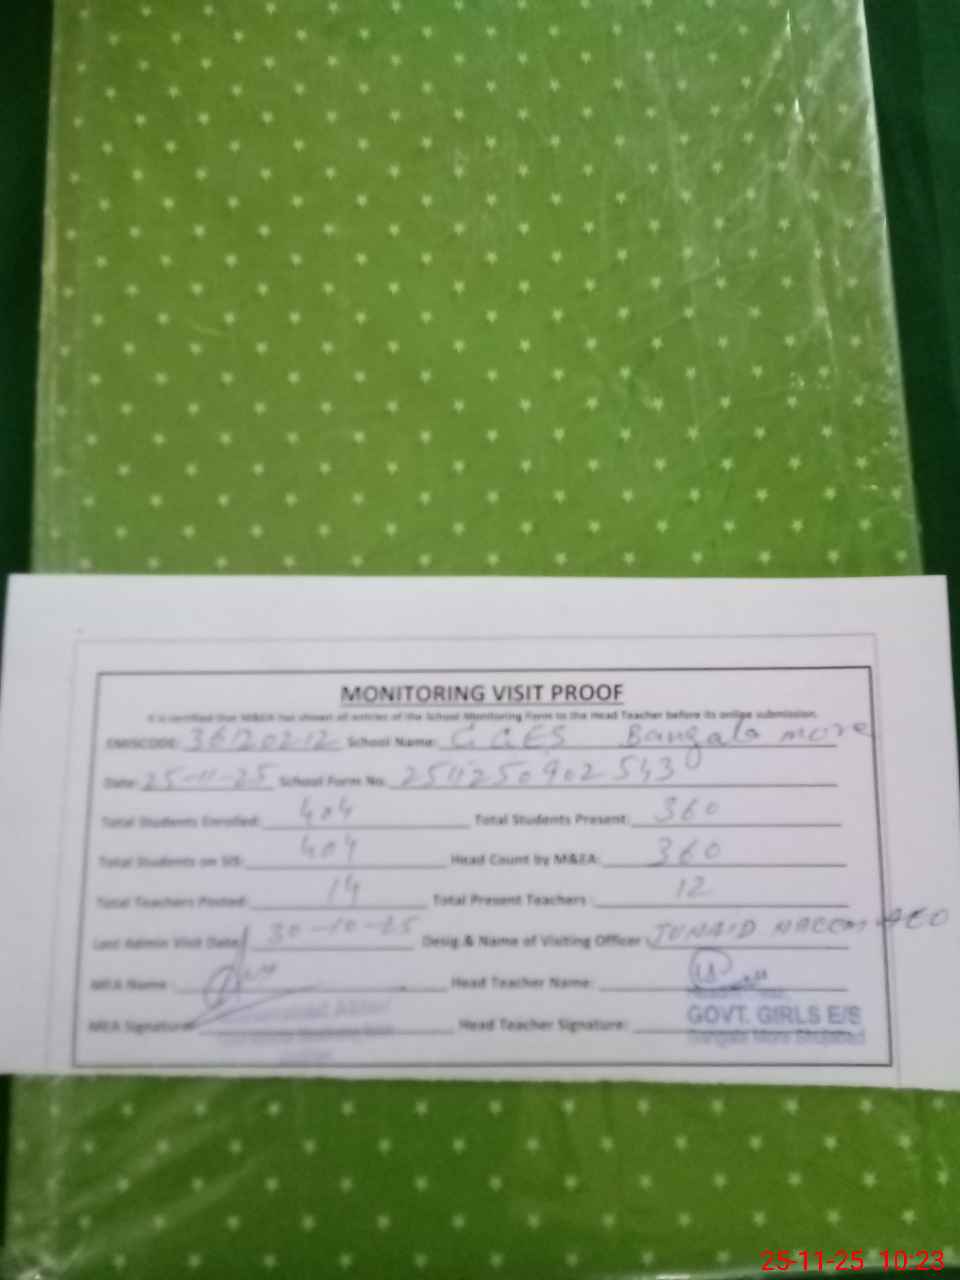 MONITORING VISIT PROOF
It is certified that M&EA has shown all entries of the School Monitoring Form to the Head Teacher before its online submission.
EMISCODE: 36120212 School Name: GGES Bangala more
Date: 25-11-25 School Form No. 25112509025430
Total Students Enrolled: 404 Total Students Present: 360
Total Students on SIS: 404 Head Count by M&EA: 360
Total Teachers Posted: 14 Total Present Teachers: 12
Last Admin Visit Date: 30-10-25 Desig.& Name of Visiting Officer JUNAID NAEEM AEO
MEA Name: Head Teacher Name:
MEA Signature: Head Teacher Signature:
GOVT. GIRLS E/S
Bangala More Shujabad
25-11-25 10:23